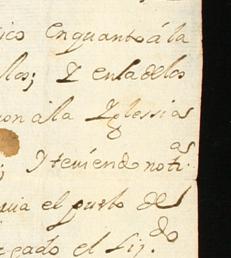 ico enquanto á la
llos; Y en la de los
on á la Yglessias
; Y teniendo noti.as
uia el puesto del
egado el Liz.do